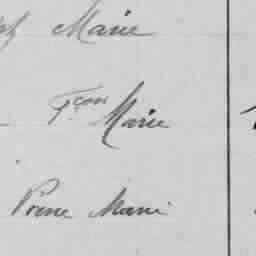 Marie
Fçon Marie
Prene Marie